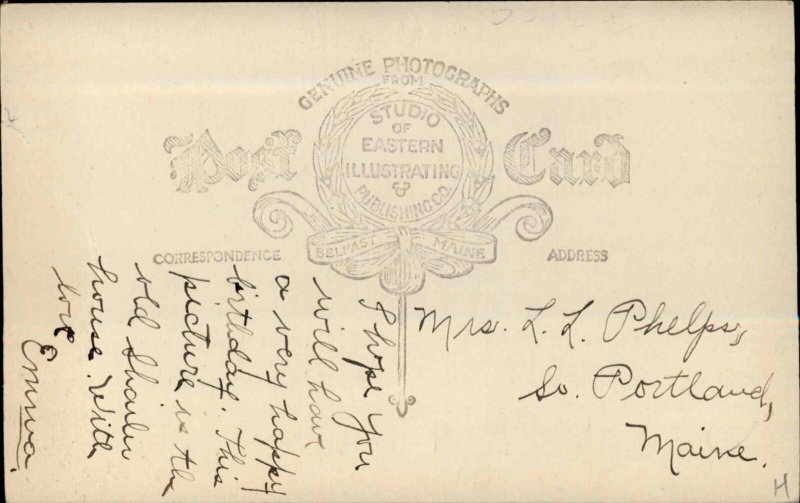 GENUINE PHOTOGRAPHS
FROM
STUDIO
OF
EASTERN
ILLUSTRATING
&
PUBLISHING CO.
Post Card
BELFAST MAINE
CORRESPONDENCE
ADDRESS
I hope you
will have
a very happy
birthday. This
picture is the
old Shailer
house. With
love
Emma.
Mrs. L. L. Phelps,
So. Portland,
Maine.
H